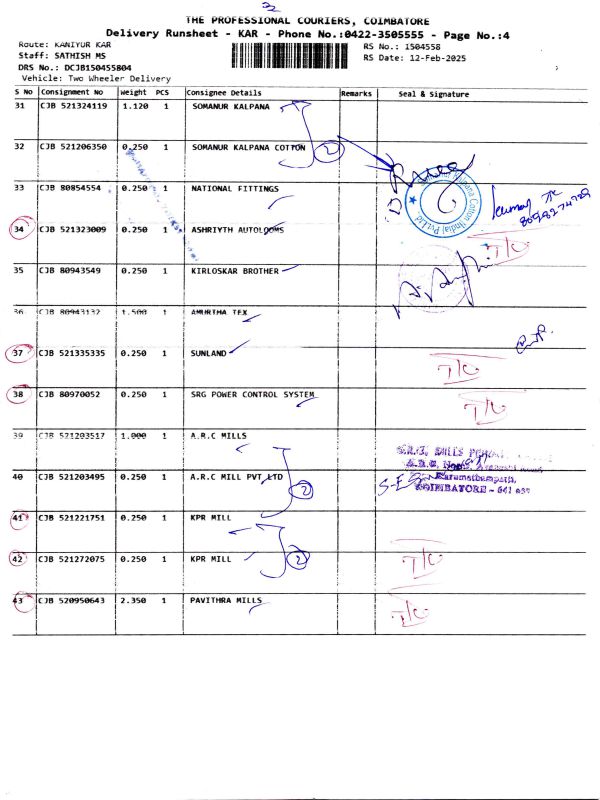 THE PROFESSIONAL COURIERS, COIMBATORE
Delivery Runsheet - KAR - Phone No.:0422-3505555 - Page No.:4
Route: KANIYUR KAR
RS No.: 1504558
Staff: SATHISH MS
RS Date: 12-Feb-2025
DRS No.: DCJB150455804
Vehicle: Two Wheeler Delivery
S No Consignment No Weight PCS Consignee Details Remarks Seal & Signature
31 CJB 521324119 1.120 1 SOMANUR KALPANA
32 CJB 521206350 0.250 1 SOMANUR KALPANA COTTON 2
33 CJB 80854554 0.250 1 NATIONAL FITTINGS
34 CJB 521323009 0.250 1 ASHRIYTH AUTOLOOMS T/C
35 CJB 80943549 0.250 1 KIRLOSKAR BROTHER
36 CJB 80943132 1.500 1 AMURTHA TEX
37 CJB 521335335 0.250 1 SUNLAND T/C
38 CJB 80970052 0.250 1 SRG POWER CONTROL SYSTEM T/C
39 CJB 521203517 1.000 1 A.R.C MILLS
40 CJB 521203495 0.250 1 A.R.C MILL PVT LTD 2
Karumathampatti,
COIMBATORE - 641
41 CJB 521221751 0.250 1 KPR MILL
42 CJB 521272075 0.250 1 KPR MILL 2 T/C
43 CJB 520950643 2.350 1 PAVITHRA MILLS T/C